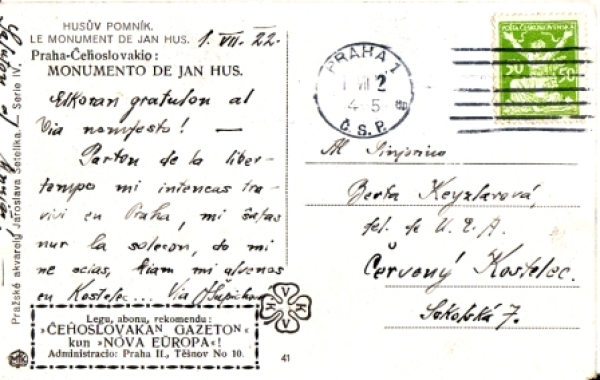 HUSŮV POMNÍK.
LE MONUMENT DE JAN HUS.
1. VII. 22.
Praha-Ĉeĥoslovakio:
MONUMENTO DE JAN HUS.
Elkoran gratulon al
Via nomfesto! —
Parton de la liber-
tempo mi intencas tra-
vivi en Praha, mi ŝatas
nur la solecon, do mi
ne scias, kiam mi alvenos
en Kostelec... Via
Legu, abonu, rekomendu:
»ĈEĤOSLOVAKAN GAZETON«
kun »NOVA EŬROPA«!
Administracio: Praha II., Těšnov No 10.
Pražské akvarely Jaroslava Setelíka. — Serie IV.
41
V K V K
MK
POŠTA ČESKOSLOVENSKÁ
50 50
PRAHA 1
1 VII 2
4-5
Č.S.P.
Al Sinjorino
Berta Keyzlarová,
del. de U. E. A.
Červený Kostelec.
Sokolská 7.